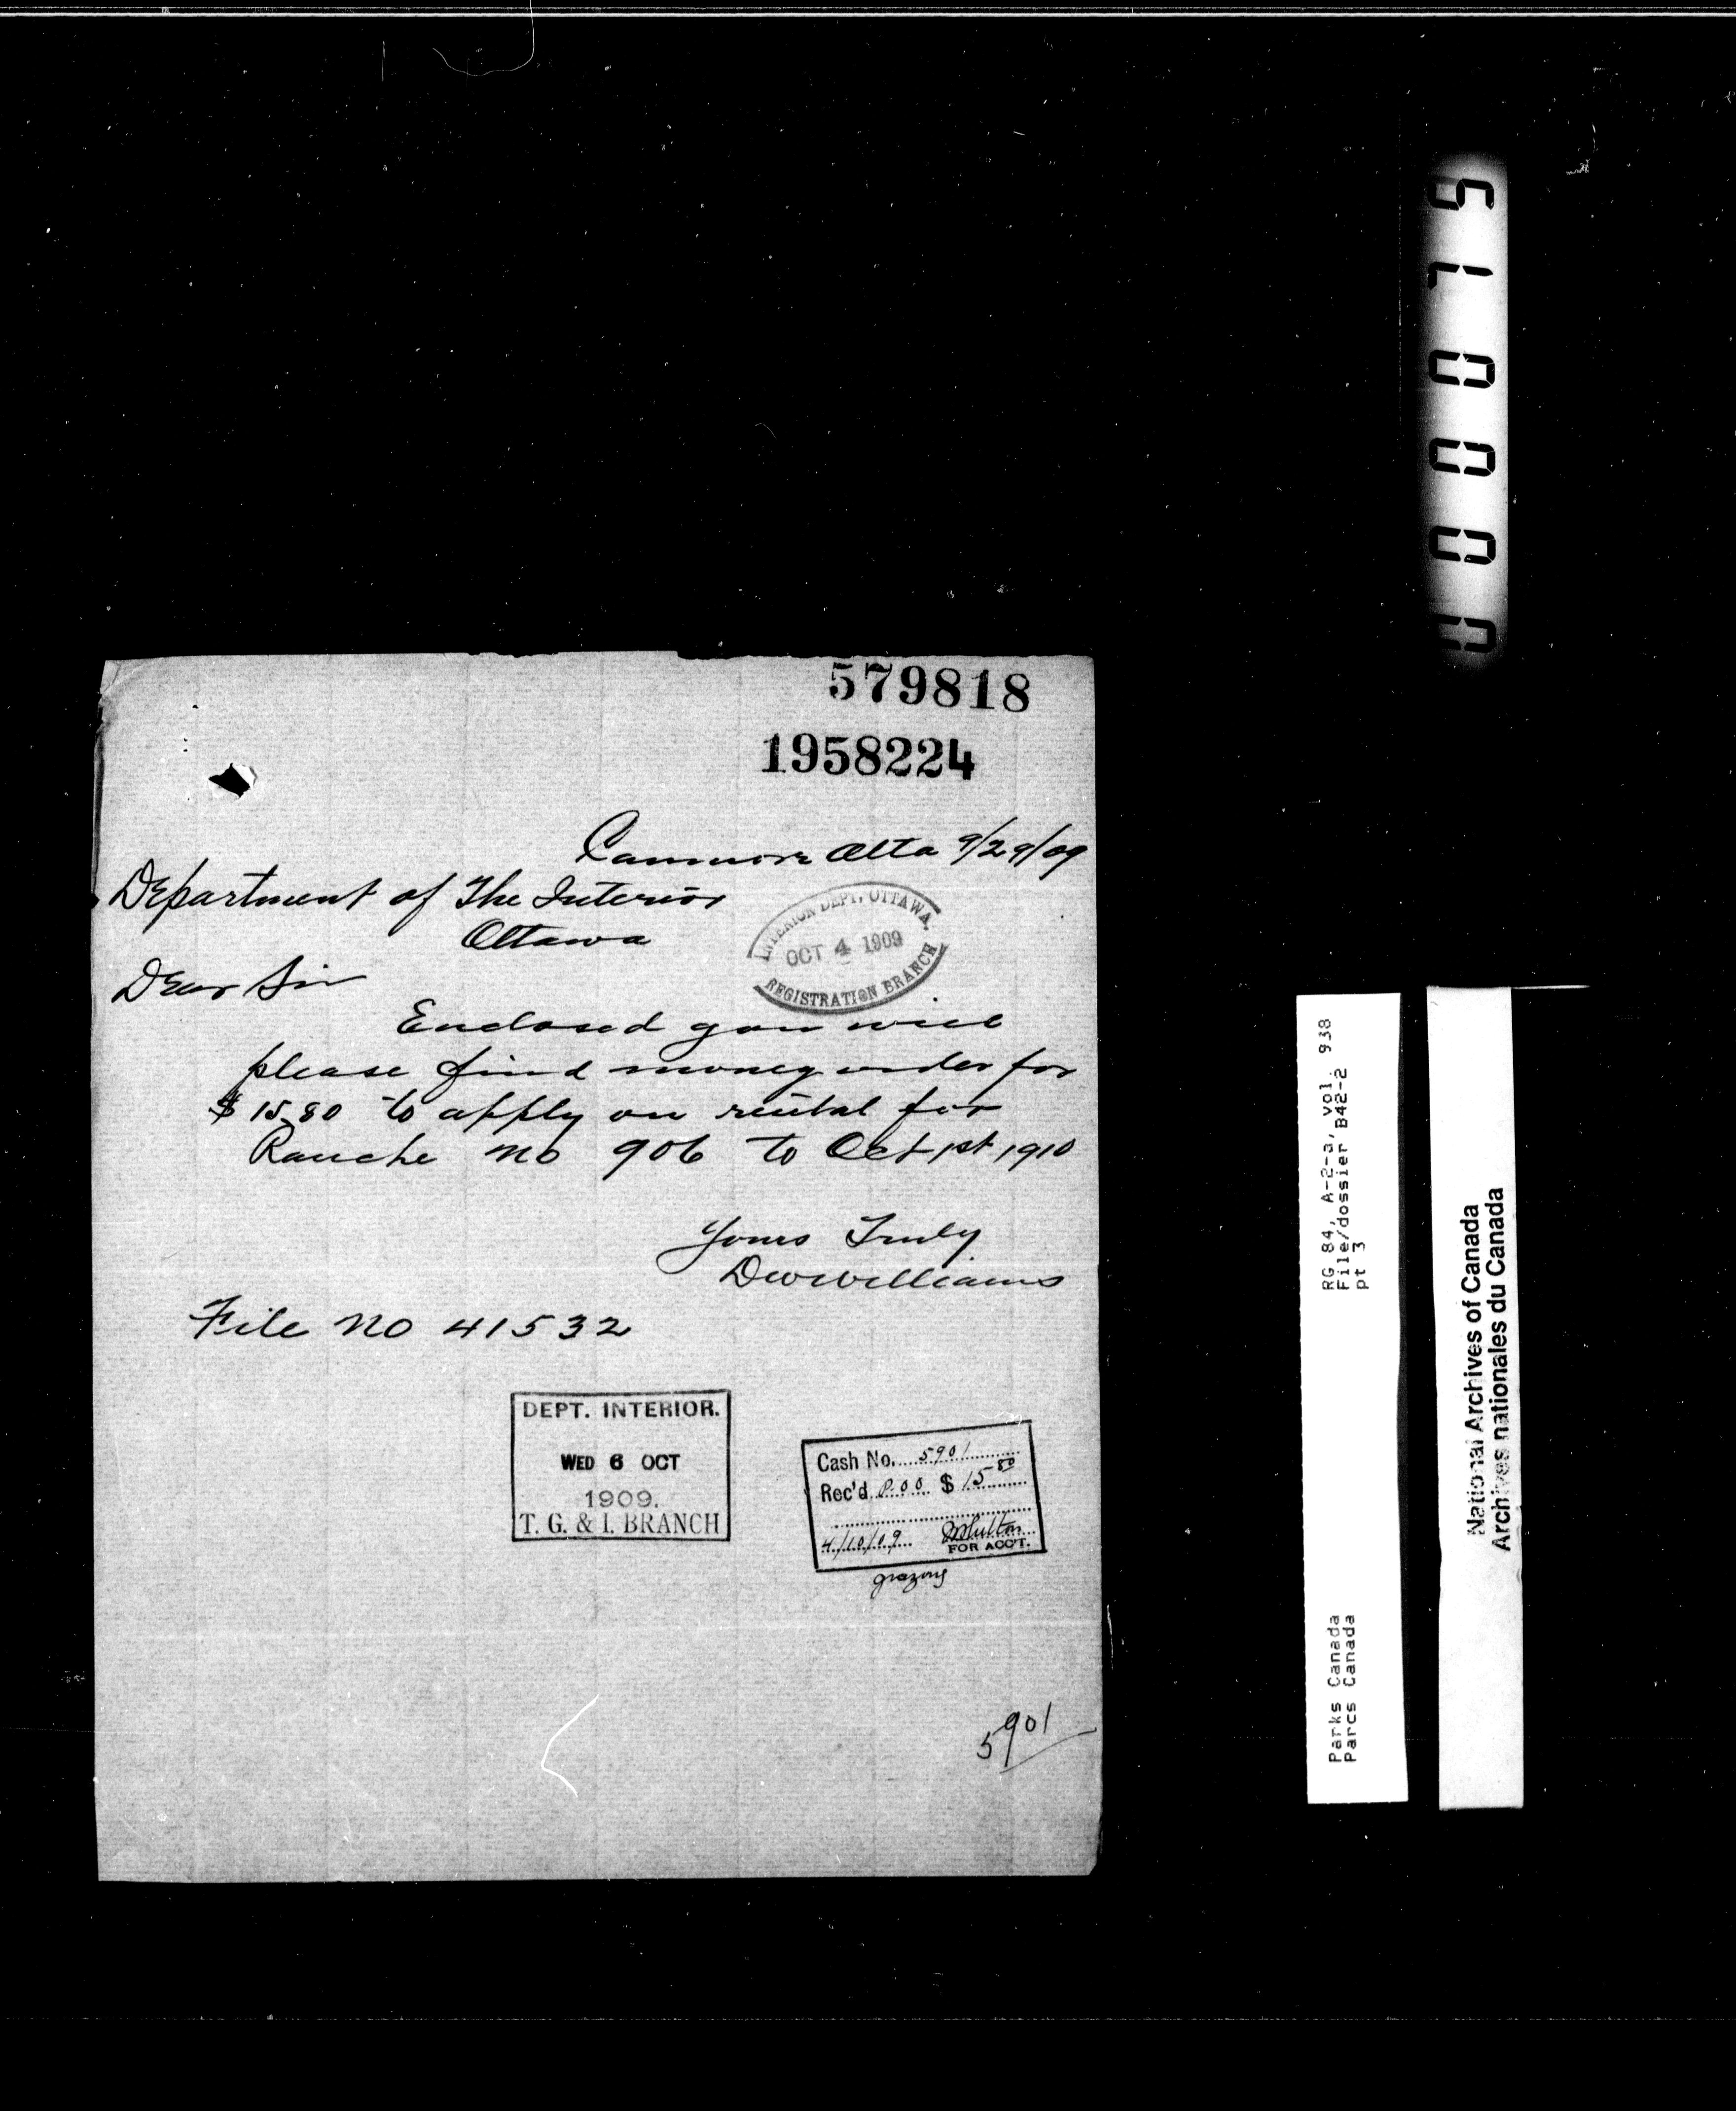 579818
1958224
Canmore Alta 9/29/09
Department of The Interior
Ottawa
INTERIOR DEPT. OTTAWA.
OCT 4 1909
REGISTRATION BRANCH
Dear Sir
Enclosed you will
please find money order for
$15.80 to apply on rental for
Ranche no 906 to Oct 1st 1910
Yours Truly
DWWilliams
File no 41532
DEPT. INTERIOR.
WED 6 OCT
1909.
T. G. & I. BRANCH
Cash No. 5901
Rec'd $ 15 80
4/10/09
FOR ACC'T.
grazing
5901
000079
RG 84, A-2-a, vol. 938
File/dossier B42-2
pt 3
Parks Canada
Parcs Canada
National Archives of Canada
Archives nationales du Canada